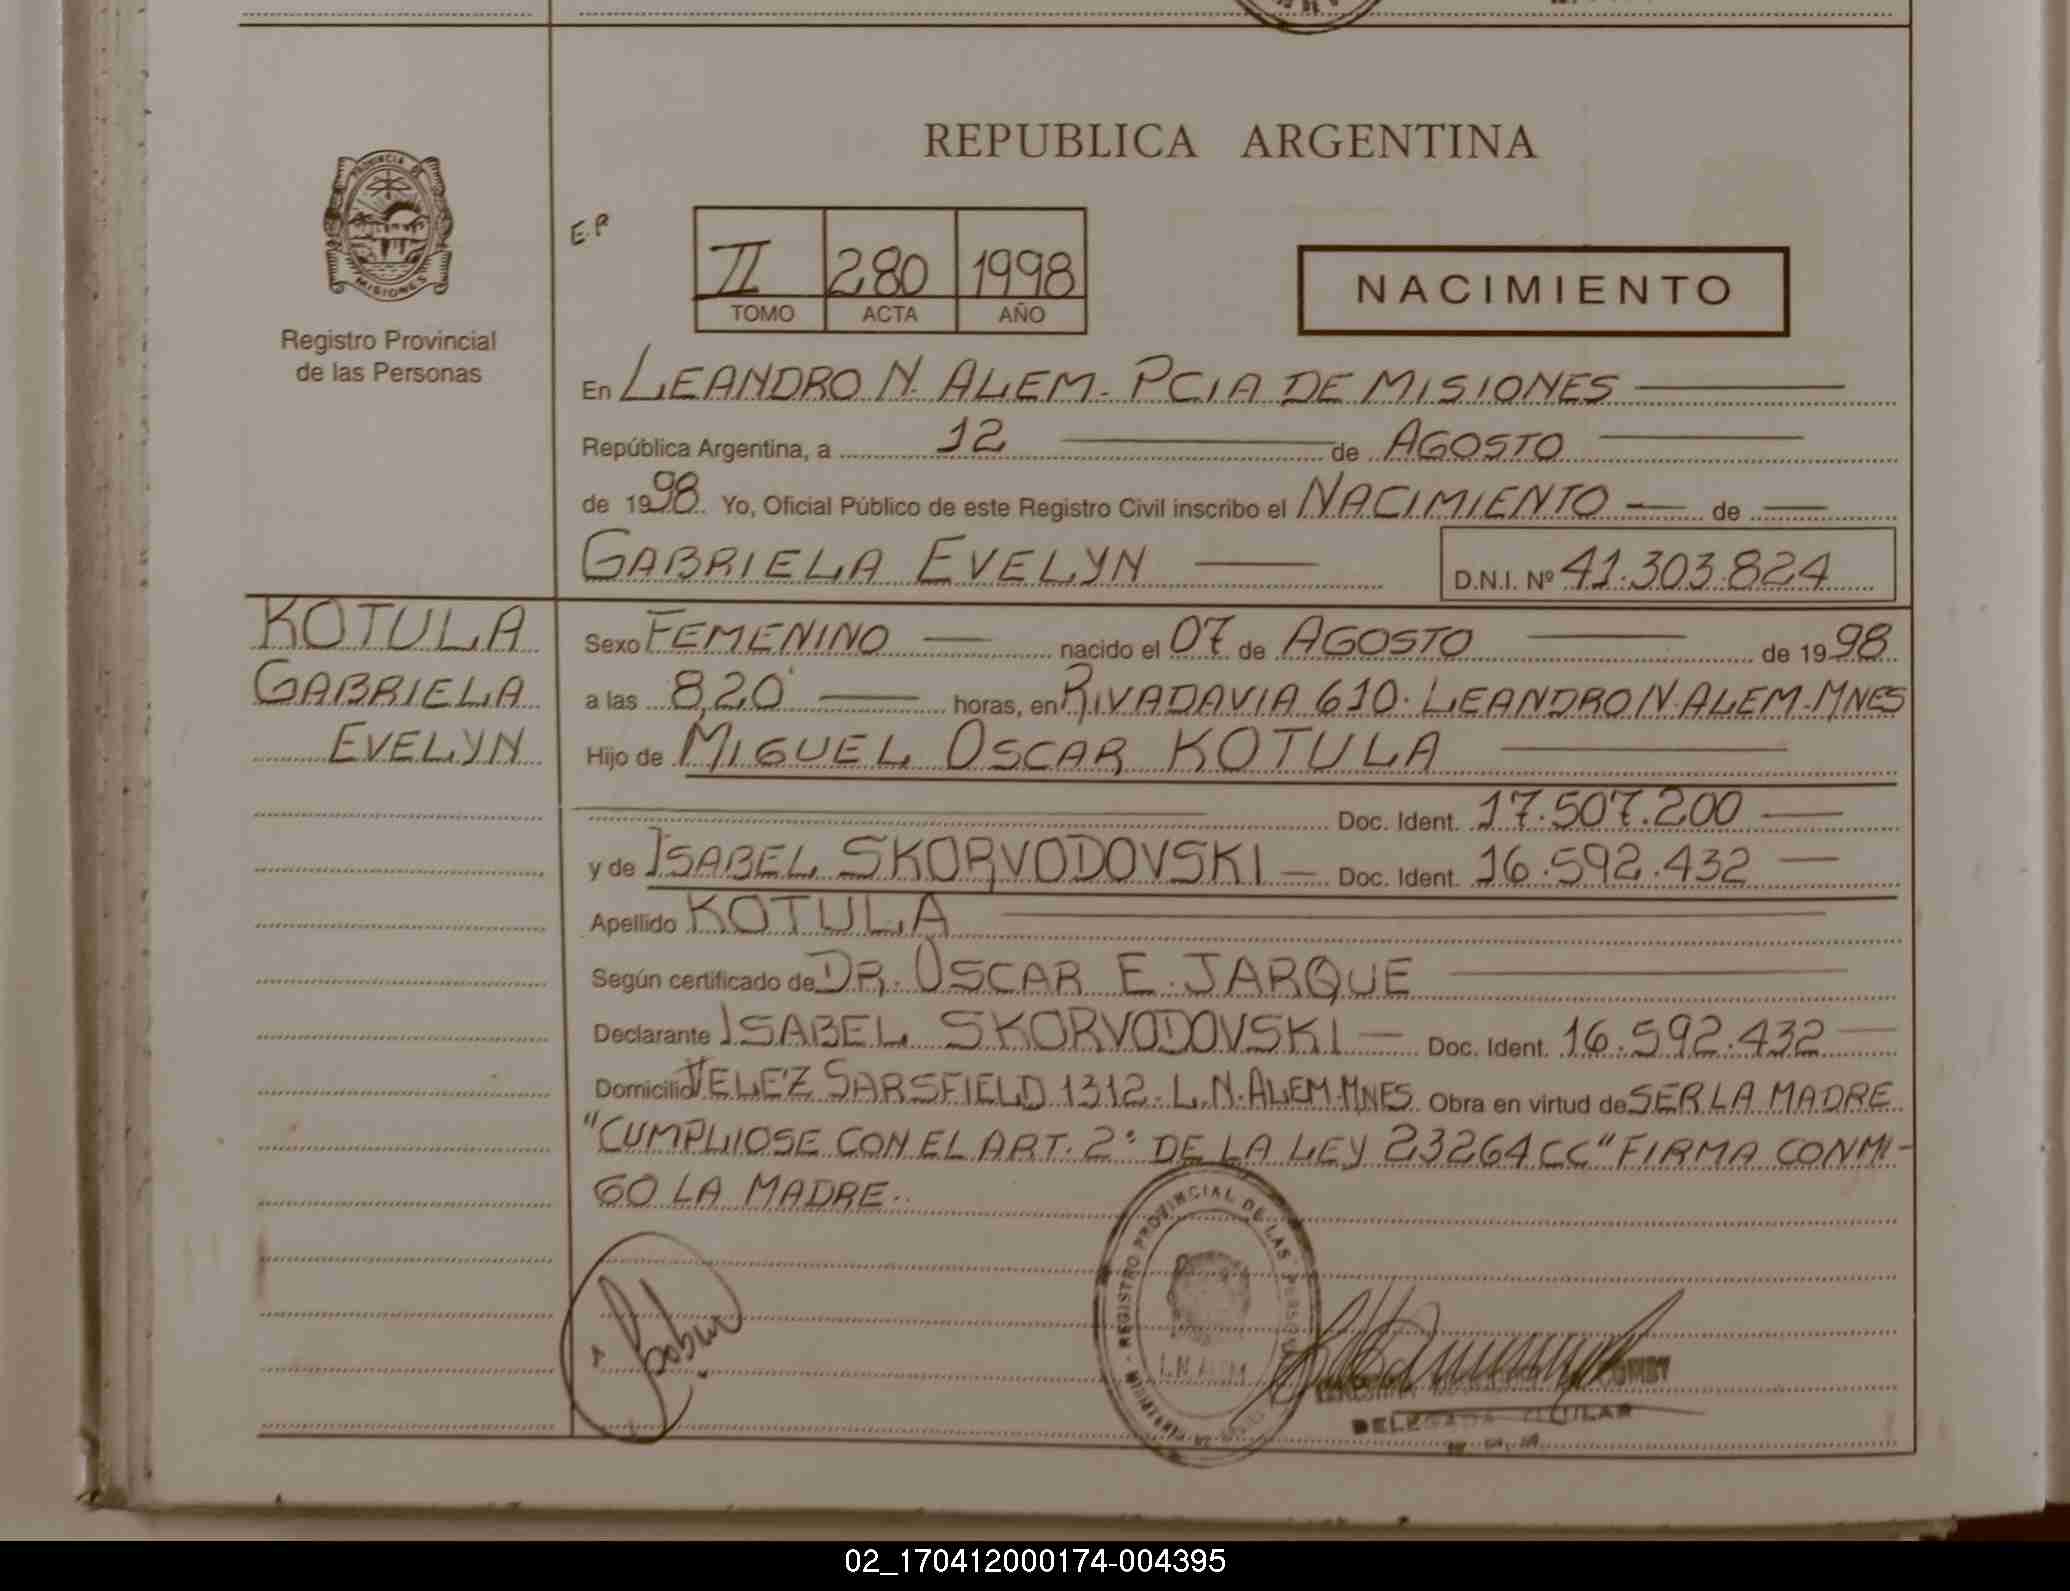 REPUBLICA ARGENTINA
PROVINCIA DE MISIONES
Registro Provincial
de las Personas
E.P
II 280 1998
TOMO ACTA AÑO
NACIMIENTO
En LEANDRO N. ALEM - PCIA DE MISIONES
República Argentina, a 12 de AGOSTO
de 1998. Yo, Oficial Público de este Registro Civil inscribo el NACIMIENTO de
GABRIELA EVELYN D.N.I. Nº 41.303.824
KOTULA
GABRIELA
EVELYN
Sexo FEMENINO nacido el 07 de AGOSTO de 1998
a las 8,20 horas, en RIVADAVIA 610. LEANDRO N. ALEM-MNES
Hijo de MIGUEL OSCAR KOTULA
Doc. Ident. 17.507.200
y de ISABEL SKORVODOVSKI Doc. Ident. 16.592.432
Apellido KOTULA
Según certificado de DR. OSCAR E. JARQUE
Declarante ISABEL SKORVODOVSKI Doc. Ident. 16.592.432
Domicilio VELEZ SARSFIELD 1312. L.N. ALEM-MNES Obra en virtud de SER LA MADRE
"CUMPLIOSE CON EL ART. 2° DE LA LEY 23264 CC" FIRMA CONMI-
GO LA MADRE..
REGISTRO PROVINCIAL DE LAS PERSONAS
L.N. ALEM
DELEGADA TITULAR
02_170412000174-004395